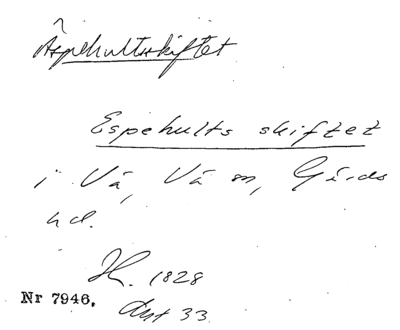 Äspehultsskiftet
Espehults skiftet
i Vå, Vå sn, Gärds
hd.
1828
Nr 7946.
Akt 33